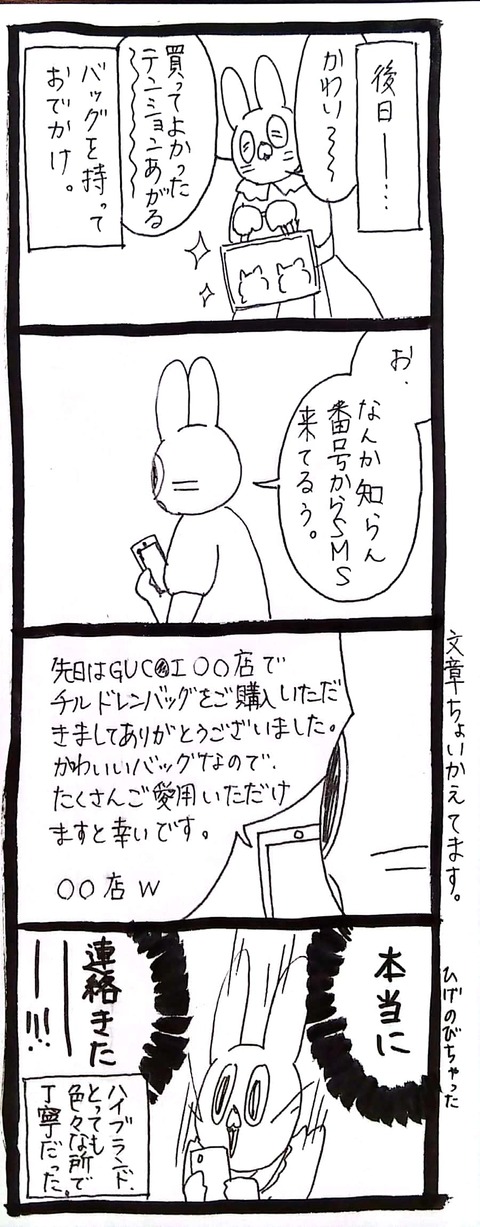 後日――…
かわい〜〜
買ってよかった
テンションあがる
〜〜〜
バッグを持って
おでかけ。
お、
なんか知らん
番号からSMS
来てるぅ。
先日はGUC●I○○店で
チルドレンバッグをご購入いただ
きましてありがとうございました。
かわいいバッグなので、
たくさんご愛用いただけ
ますと幸いです。
○○店 W
文章ちょいかえてます。
本当に
連絡きた
――!!!
ハイブランド、
とっても
色々な所で
丁寧だった。
ひげのびちゃった